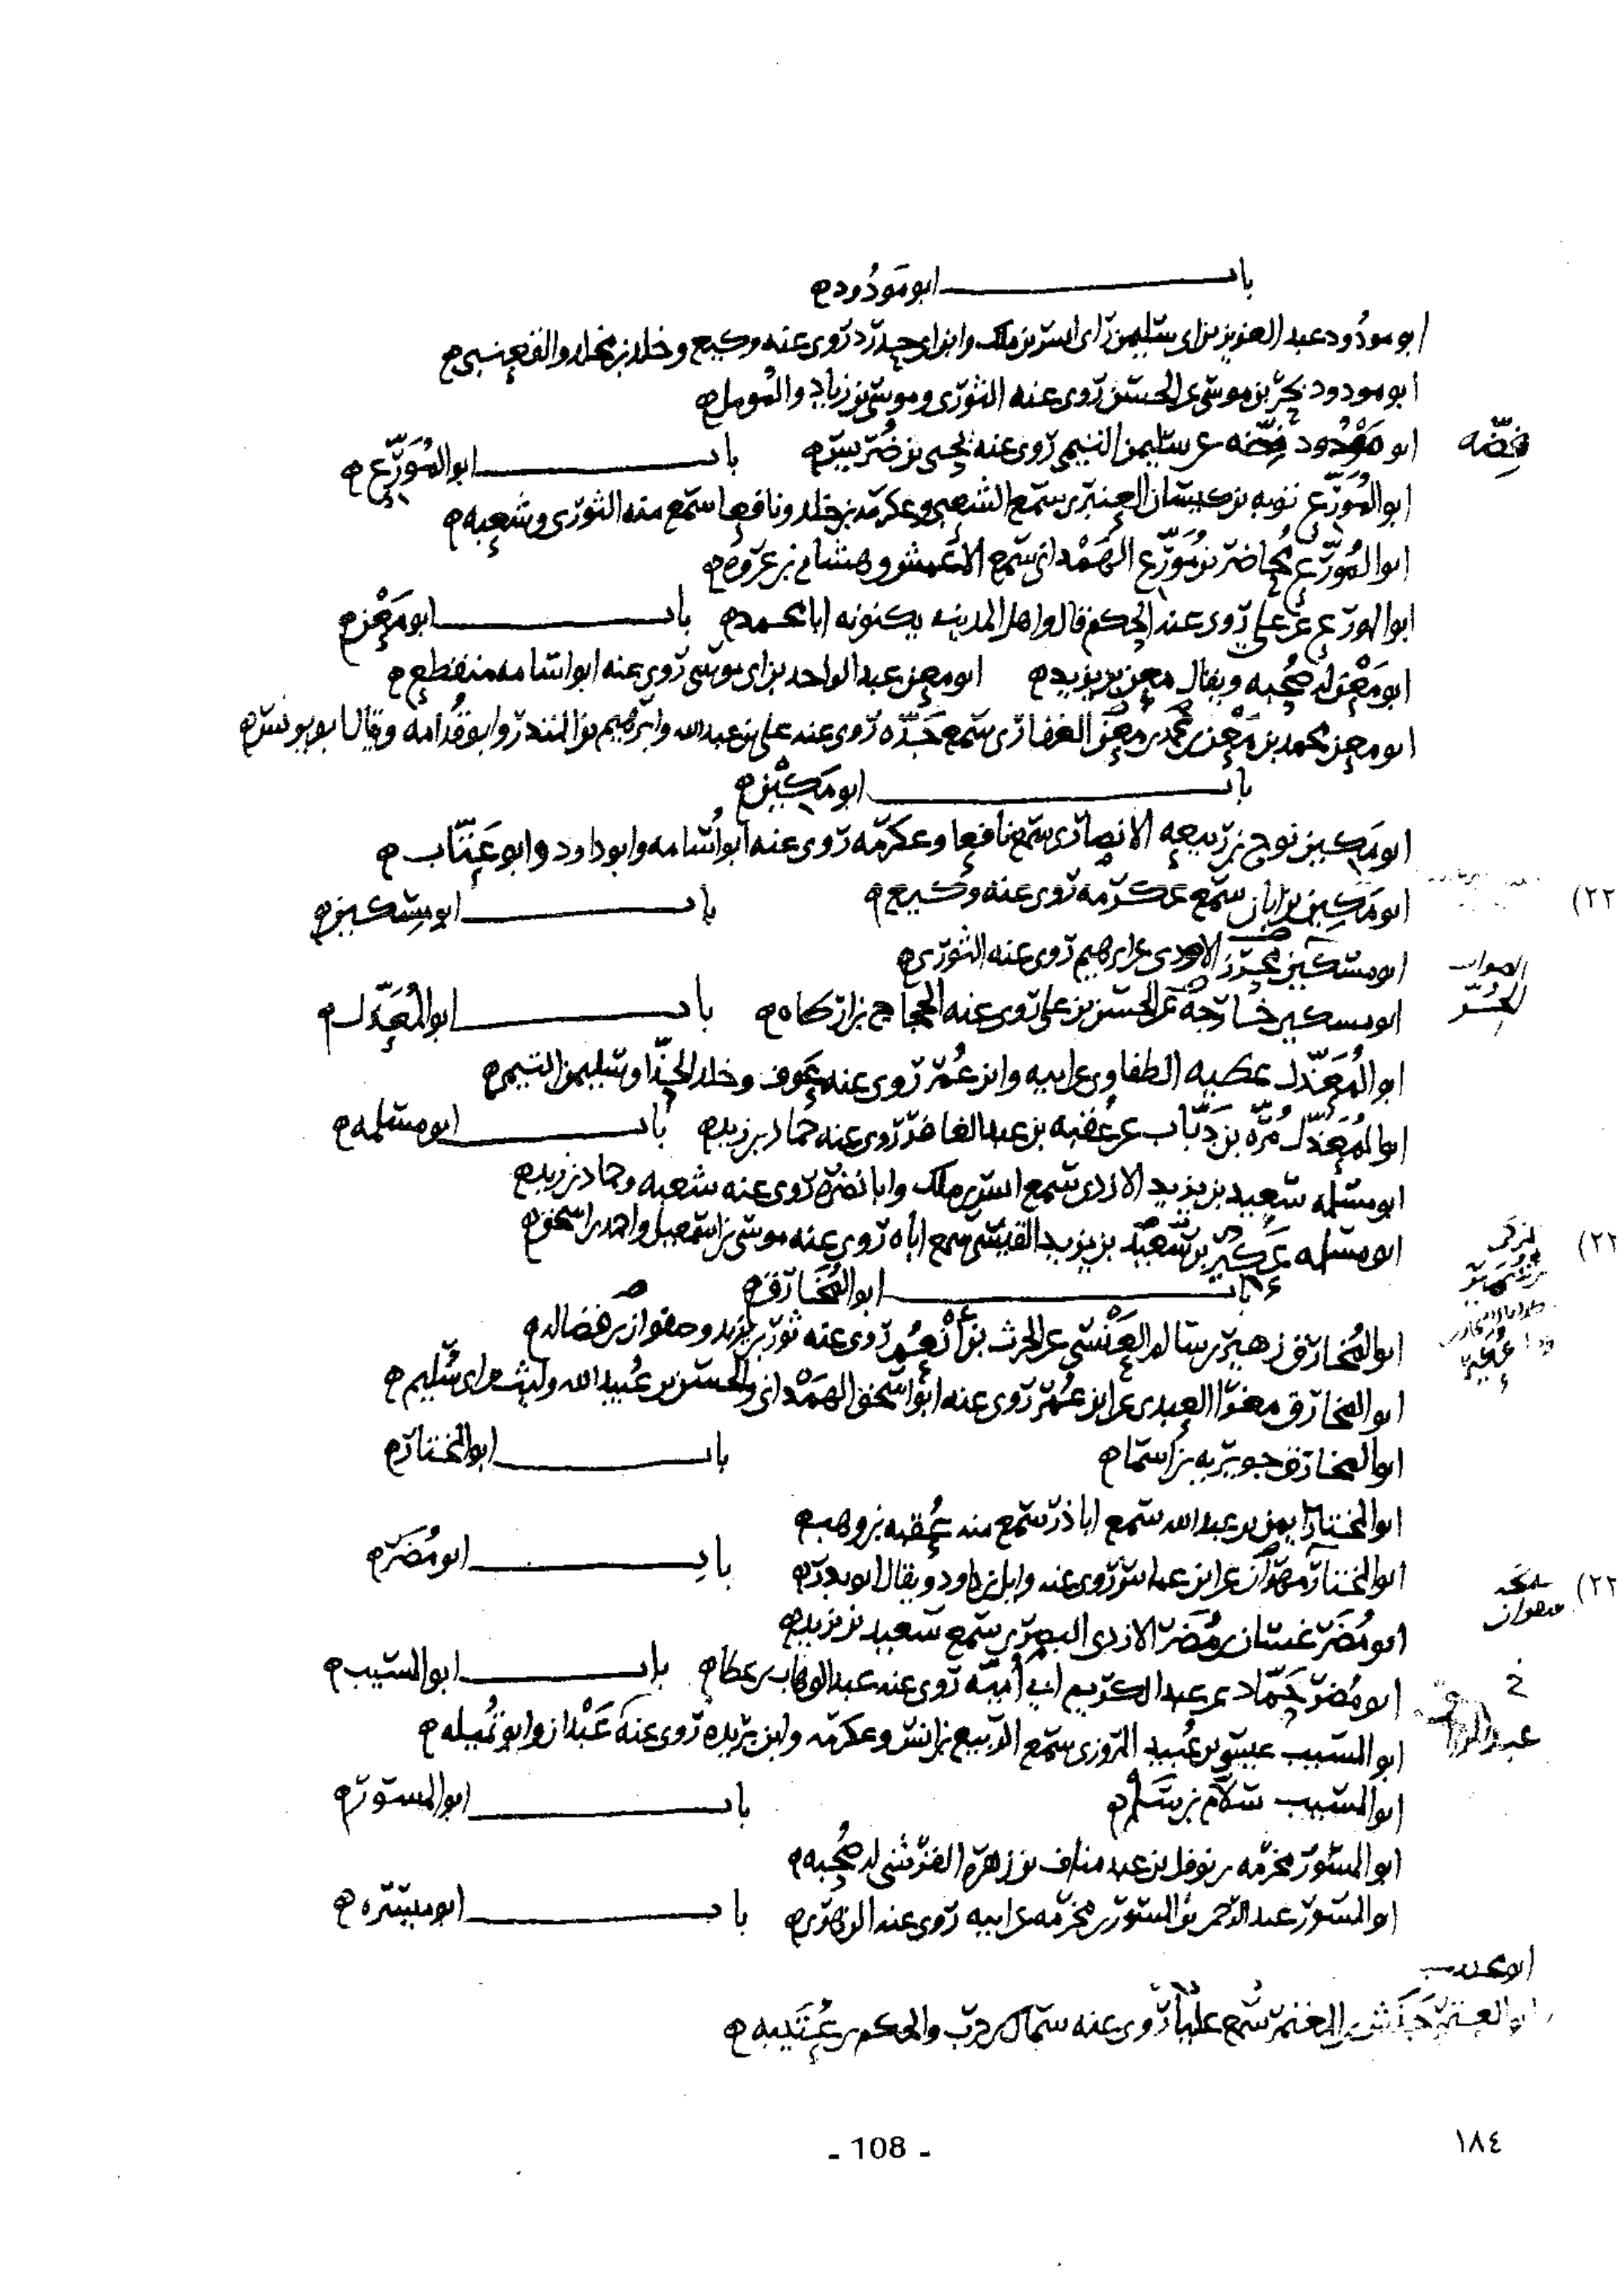 باب ابو مَودُود
ابو مودُود عبد العزيز بن ابى سليمن راى انس بن ملك وابن ابى حدرد روى عنه وكيع وخلد بن مخلد والقعنبى
ابو مودود بحر بن موسى عن الحسن روى عنه الثورى وموسى بن زياد والمومل
ابو مَوْدُود فِضّه عن سليمن التيمى روى عنه يحيى بن ضُرَيس باب ابو المُوَرّع
فِضّه
ابو المُوَرّع توبه بن كيسان العنبرى سمع الشعبى وعكرمه بن خلد ونافعا سمع منه الثورى وشعبه
ابو المُوَرّع مُحاضر بن مُوَرّع الهَمْدانى سمع الاعمش وهشام بن عروه
ابو المورع عن على روى عنه الحكم قال واهل المدينه يكنونه ابا محمد باب ابو مَعْن
ابو مَعْن له صُحبه ويقال معن بن يزيد ابو معن عبد الواحد بن ابى موسى روى عنه ابو اسامه منقطع
ابو معن محمد بن مَعْن بن محمد بن معن الغفارى سمع جَدّه روى عنه على بن عبد الله وابرهيم بن المنذر وابو قُدامه وقال ابو يونس
باب ابو مَكِين
ابو مَكين نوح بن ربيعه الانصارى سمع نافعا وعكرمه روى عنه ابو اُسامه وابو داود وابو عَتّاب
ابو مَكِين بن ابان سمع عكرمه روى عنه وكيع باب ابو مِسكين
(٢٢
ابو مسكين حر الاودى عن ابرهيم روى عنه الثورى
الصواب
الحُـرّ
ابو مسكين خارجه عن الحسن بن على روى عنه الحجاج بن ارطاه باب ابو المُعَدّل
ابو المُعَدّل عطيه الطفاوى عن ابيه وابن عُمر روى عنه عوف وخلد الحذّا وسليمن التيمى
ابو المُعَدّل مُرّه بن دَبّاب عن عُقبه بن عبد الغافر روى عنه حماد بن زيد باب ابو مسلمه
ابو مسلمه سَعيد بن يزيد الازدى سمع انس بن ملك وابا نضره روى عنه شعبه وحماد بن زيد
ابو مسلمه بن سَعيد بن يزيد القيسى سمع اباه روى عنه موسى بن اسمعيل واحمد بن اسحق
(٢٢
باب ابو المُخَارق
ابو المُخارق زهير بن سالم العَنْسى عن الحرث بن أَنْعُم روى عنه ثور بن يزيد وصفوان بن فضاله
ابو المخارق مغرا العبدى عن ابن عُمَر روى عنه ابو اسحق الهَمْدانى والحسن بن عُبيد الله وليث بن ابى سُليم
ابو المخارق جويريه بن اسما باب ابو المختار
ابو المختار ايمن بن عبد الله سمع ابا ذر سمع منه عُقبه بن وهب
ابو المختار صفوان عن ابن عباس روى عنه وايل بن داود ويقال ابو بدر باب ابو مُضَر
(٢٢
صفوان
ابو مُضَر غسان بن مُضَر الازدى البصرى سمع سعيد بن يزيد
ابو مُضَر حماد عن عبد الكريم ابى اُميّه روى عنه عبد الوهاب بن عطا باب ابو المسيب
ابو المسيب عيسى بن عُبيد المروزى سمع الربيع بن انس وعكرمه وابن بريده روى عنه عَبْدان وابو تُميله
ابو المسيب سلّام بن باب ابو المسور
ابو المسور مخرمه بن نوفل بن عبد مناف بن زهره القرشى له صُحبه
ابو المسور عبد الرحمن بن المسور بن مخرمه عن ابيه روى عنه الزهرى باب ابو ميسره
حَنَش بن المعتمر سمع عليًا روى عنه سماك بن حرب والحكم بن عُتَيبه
- 108 -
١٨٤